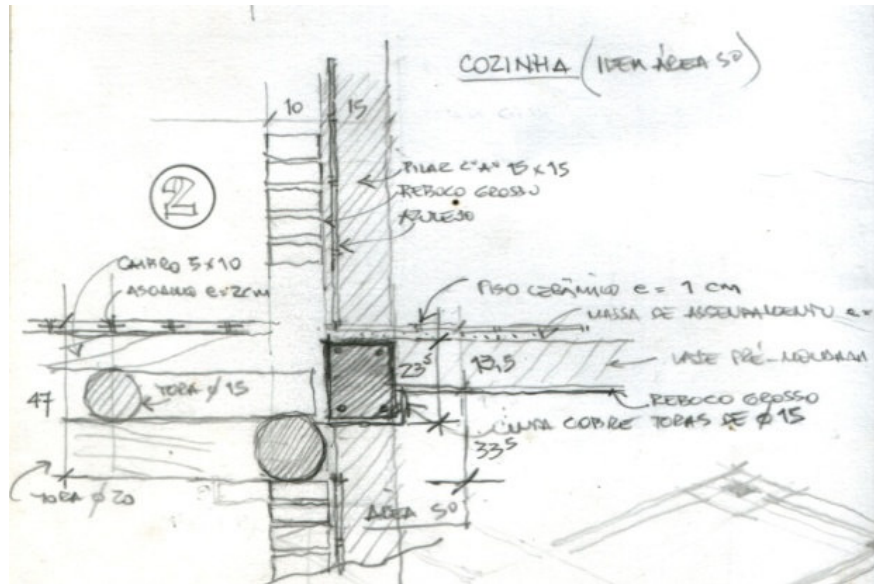 COZINHA (IDEM ÁREA Sº)
10 15
2
PILAR CºAº 15 x 15
REBOCO GROSSO
AZULEJO
CAIBRO 5 x 10
ASSOALHO e = 2cm
PISO CERÂMICO e = 1 cm
MASSA DE ASSENTAMENTO e =
23⁵ 13,5
LAJE PRÉ-MOLDADA
TORA Ø 15
47
REBOCO GROSSO
CINTA SOBRE TORAS DE Ø 15
33⁵
TORA Ø 20
ÁREA Sº